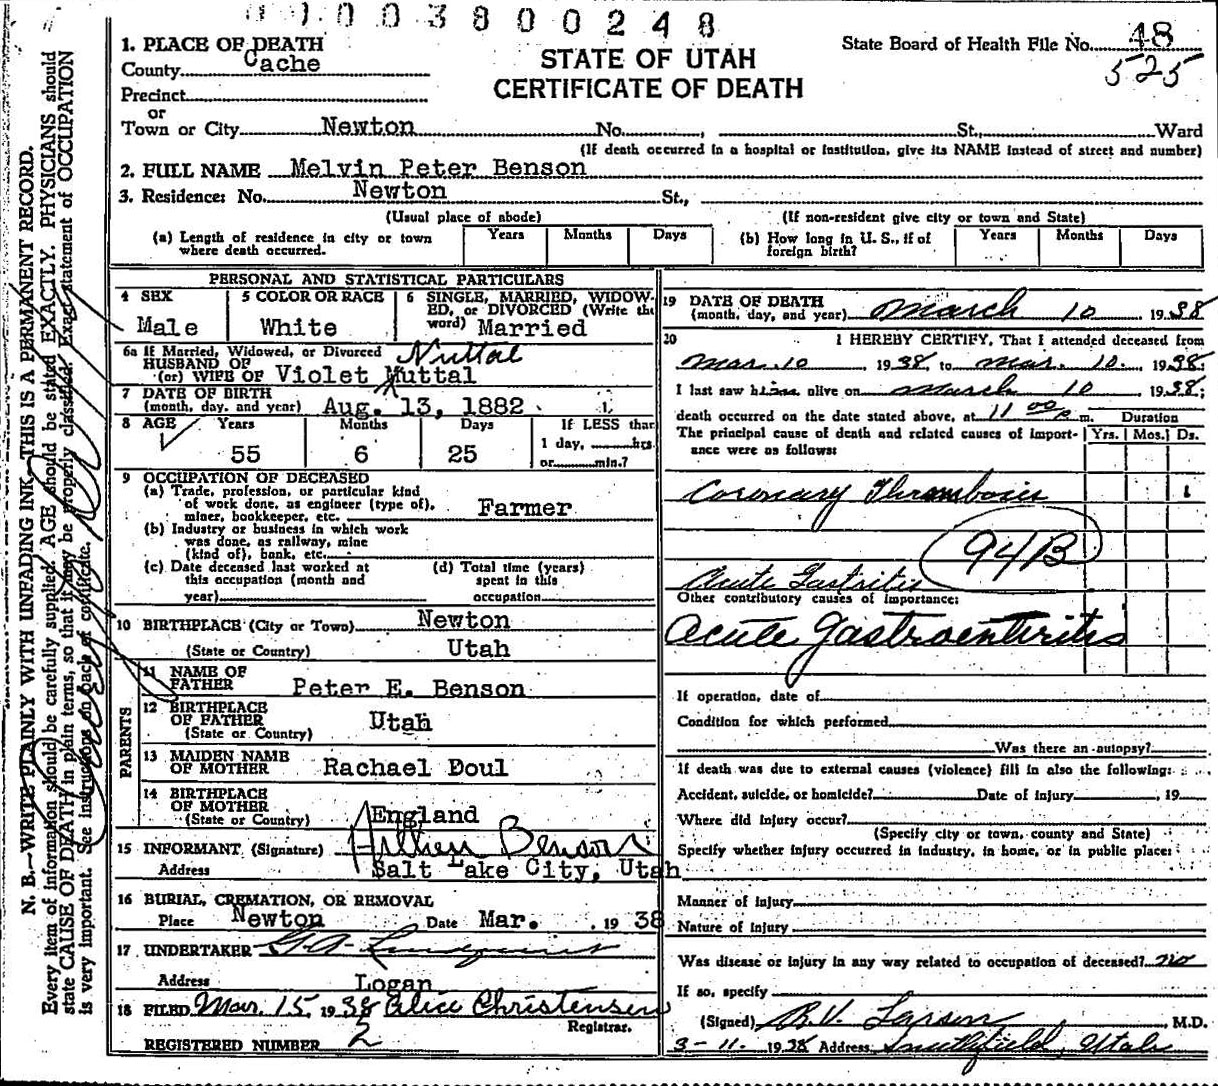 003800248
1. PLACE OF DEATH
County Cache
STATE OF UTAH
CERTIFICATE OF DEATH
State Board of Health File No. 48
525
Precinct
or
Town or City Newton No. , St., Ward
(If death occurred in a hospital or institution, give its NAME instead of street and number)
2. FULL NAME Melvin Peter Benson
3. Residence: No. Newton St.,
(Usual place of abode) (If non-resident give city or town and State)
(a) Length of residence in city or town where death occurred. Years Months Days
(b) How long in U. S., if of foreign birth? Years Months Days
PERSONAL AND STATISTICAL PARTICULARS
4 SEX Male
5 COLOR OR RACE White
6 SINGLE, MARRIED, WIDOW-
ED, or DIVORCED (Write the
word) Married
6a If Married, Widowed, or Divorced Nuttal
HUSBAND OF
(or) WIFE OF Violet Muttal
7 DATE OF BIRTH
(month, day, and year) Aug. 13, 1882
8 AGE Years Months Days If LESS than
55 6 25 1 day, hrs.
or min.?
9 OCCUPATION OF DECEASED
(a) Trade, profession, or particular kind
of work done, as engineer (type of),
miner, bookkeeper, etc. Farmer
(b) Industry or business in which work
was done, as railway, mine
(kind of), bank, etc.
(c) Date deceased last worked at
this occupation (month and
year)
(d) Total time (years)
spent in this
occupation
10 BIRTHPLACE (City or Town) Newton
(State or Country) Utah
PARENTS
11 NAME OF
FATHER Peter E. Benson
12 BIRTHPLACE
OF FATHER Utah
(State or Country)
13 MAIDEN NAME
OF MOTHER Rachael Doul
14 BIRTHPLACE
OF MOTHER
(State or Country) England
15 INFORMANT (Signature) Benson
Address Salt Lake City, Utah
16 BURIAL, CREMATION, OR REMOVAL
Place Newton Date Mar. , 19 38
17 UNDERTAKER
Address Logan
18 FILED Mar. 15, 1938 Alice Christensen
Registrar.
REGISTERED NUMBER 2
19 DATE OF DEATH
(month, day, and year) March 10 , 1938
20 I HEREBY CERTIFY, That I attended deceased from
Mar. 10 1938, to Mar. 10. 1938;
I last saw him alive on March 10 , 1938;
death occurred on the date stated above, at 11 00 p.m. Duration
The principal cause of death and related causes of import- Yrs. Mos. Ds.
ance were as follows:
Coronary Thrombosis 1
94B
Acute Gastritis
Other contributory causes of importance:
Acute Gastroenteritis
If operation, date of
Condition for which performed
Was there an autopsy?
If death was due to external causes (violence) fill in also the following:
Accident, suicide, or homicide? Date of injury , 19
Where did injury occur?
(Specify city or town, county and State)
Specify whether injury occurred in industry, in home, or in public place:
Manner of injury
Nature of injury
Was disease or injury in any way related to occupation of deceased? no
If so, specify
(Signed) R.V. Larsen , M.D.
3-11. 1938 Address Smithfield, Utah
N. B.—WRITE PLAINLY WITH UNFADING INK—THIS IS A PERMANENT RECORD.
Every item of information should be carefully supplied. AGE should be stated EXACTLY. PHYSICIANS should
state CAUSE OF DEATH in plain terms, so that it may be properly classified. Exact statement of OCCUPATION
is very important. See instructions on back of certificate.